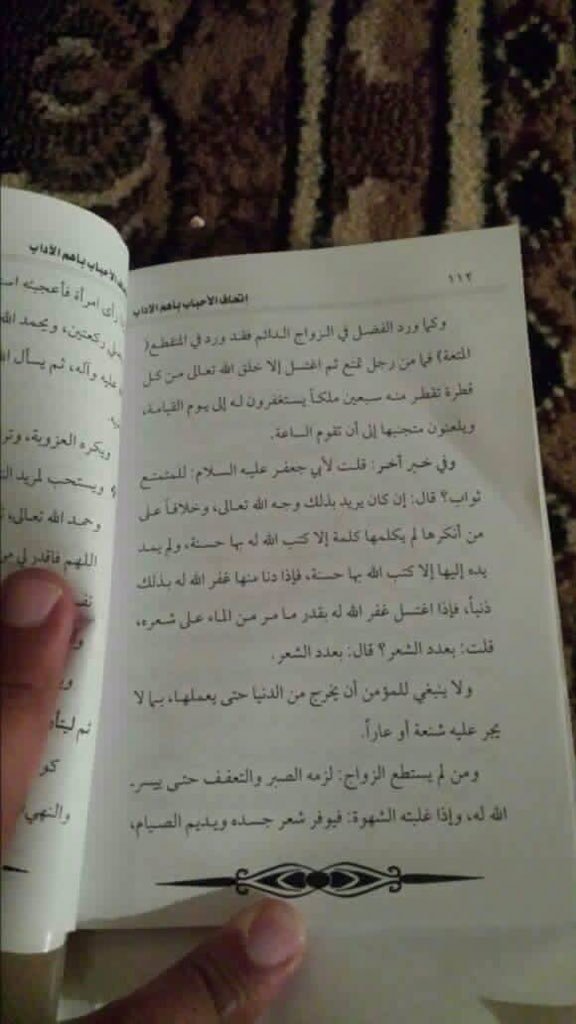 ١١٢
إتحاف الأحباب بأهم الآداب
وكما ورد الفضل في الزواج الدائم فقد ورد في المنقطع(
المتعة) فما من رجل تمتع ثم اغتسل إلا خلق الله تعالى من كل
قطرة تقطر منه سبعين ملكاً يستغفرون له إلى يوم القيامة،
ويلعنون متجنبها إلى أن تقوم الساعة.
وفي خبر آخر: قلت لأبي جعفر عليه السلام: للمتمتع
ثواب؟ قال: إن كان يريد بذلك وجه الله تعالى، وخلافاً على
من أنكرها لم يكلمها كلمة إلا كتب الله له بها حسنة، ولم يمد
يده إليها إلا كتب الله بها حسنة، فإذا دنا منها غفر الله له بذلك
ذنباً، فإذا اغتسل غفر الله له بقدر ما مر من الماء على شعره،
قلت: بعدد الشعر؟ قال: بعدد الشعر.
ولا ينبغي للمؤمن أن يخرج من الدنيا حتى يعملها، بما لا
يجر عليه شنعة أو عاراً.
ومن لم يستطع الزواج: لزمه الصبر والتعفف حتى ييسر
الله له، وإذا غلبته الشهوة: فيوفر شعر جسده ويديم الصيام،
الأحباب بأهم الآداب
رأى امرأة فأعجبته
ركعتين، ويحمد الله
عليه وآله، ثم يسأل
ويكره العزوبة،
ويستحب لمريد
وحمد الله تعالى،
اللهم فاقدر لي
ثم
والنهي